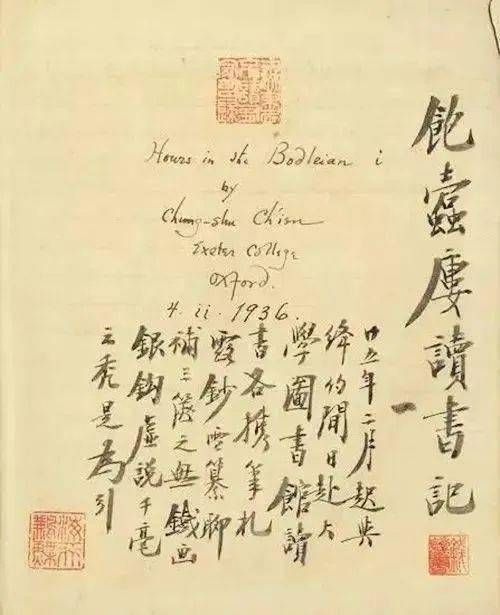 飽蠹廔讀書記
一
Hours in the Bodleian i
by
Chung-shu Ch'ien
Exeter College
Oxford.
4. ii. 1936.
廿五年二月起與
絳約間日赴大
學圖書館讀
書各携筆札
露鈔雪纂聊
補三篋之無鐵画
銀鉤虛說千毫
之禿是為引